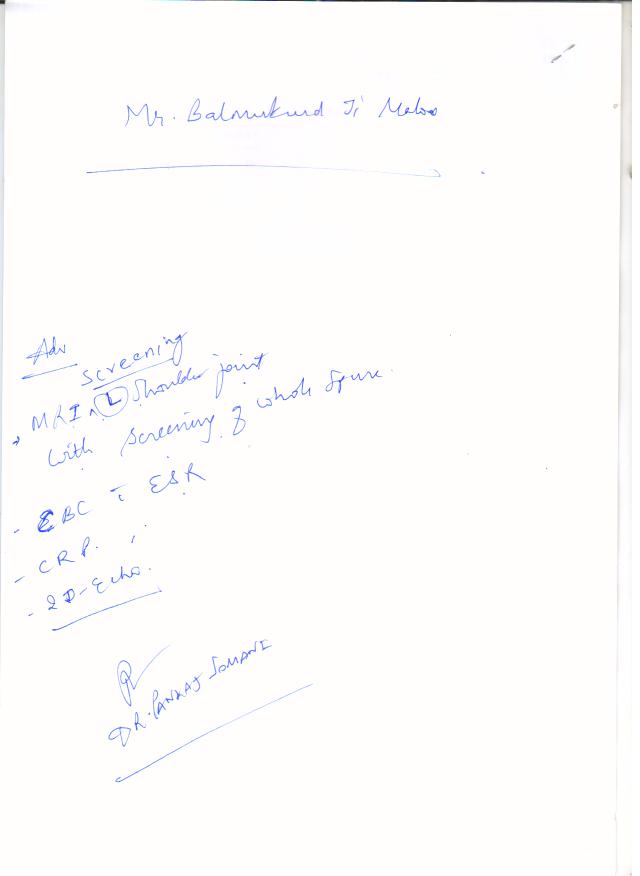 Mr. Balmukund Ji Maloo
Adv
Screening
MRI (L) Shoulder joint
with screening of whole spine.
- CBC c̄ ESR
- CRP.
- 2D-Echo.
DR. PANKAJ SOMANI